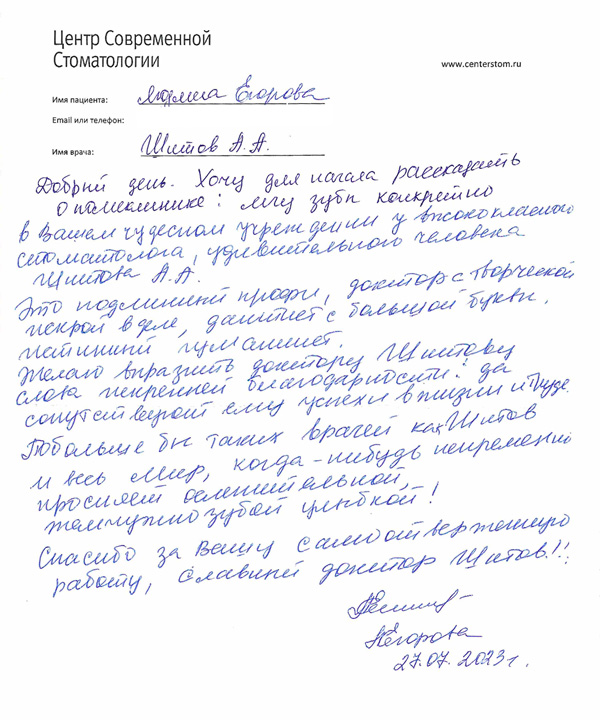 Центр Современной
Стоматологии
www.centerstom.ru
Имя пациента: Людмила Егорова
Email или телефон:
Имя врача: Шитов А.А.
Добрый день. Хочу для начала рассказать
о поликлинике: лечу зубы конкретно
в Вашем чудесном учреждении у высококлассного
стоматолога, удивительного человека
Шитова А.А.
Это подлинный профи, доктор с творческой
искрой в деле, дантист с большой буквы,
истинный гуманист.
Желаю выразить доктору Шитову
слова искренней благодарности: да
сопутствуют ему успехи в жизни и труде.
Побольше бы таких врачей как Шитов
и весь мир, когда-нибудь непременно
просияет ослепительной,
жемчужнозубой улыбкой!
Спасибо за Вашу самоотверженную
работу, славный доктор Шитов!!!
Егорова
27.07.2023г.